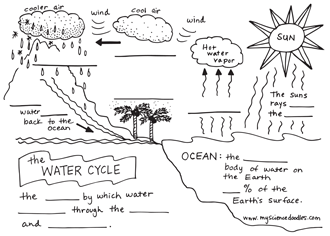 cooler air
wind
cool air
wind
Hot
water
vapor
SUN
The suns
rays ____
the ____
water ____
back to the
ocean
the
WATER CYCLE
the ____ by which water
____ through the ____
and ____.
OCEAN: the ____
body of water on
the Earth
__ % of the
Earth's surface.
www.mysciencedoodles.com